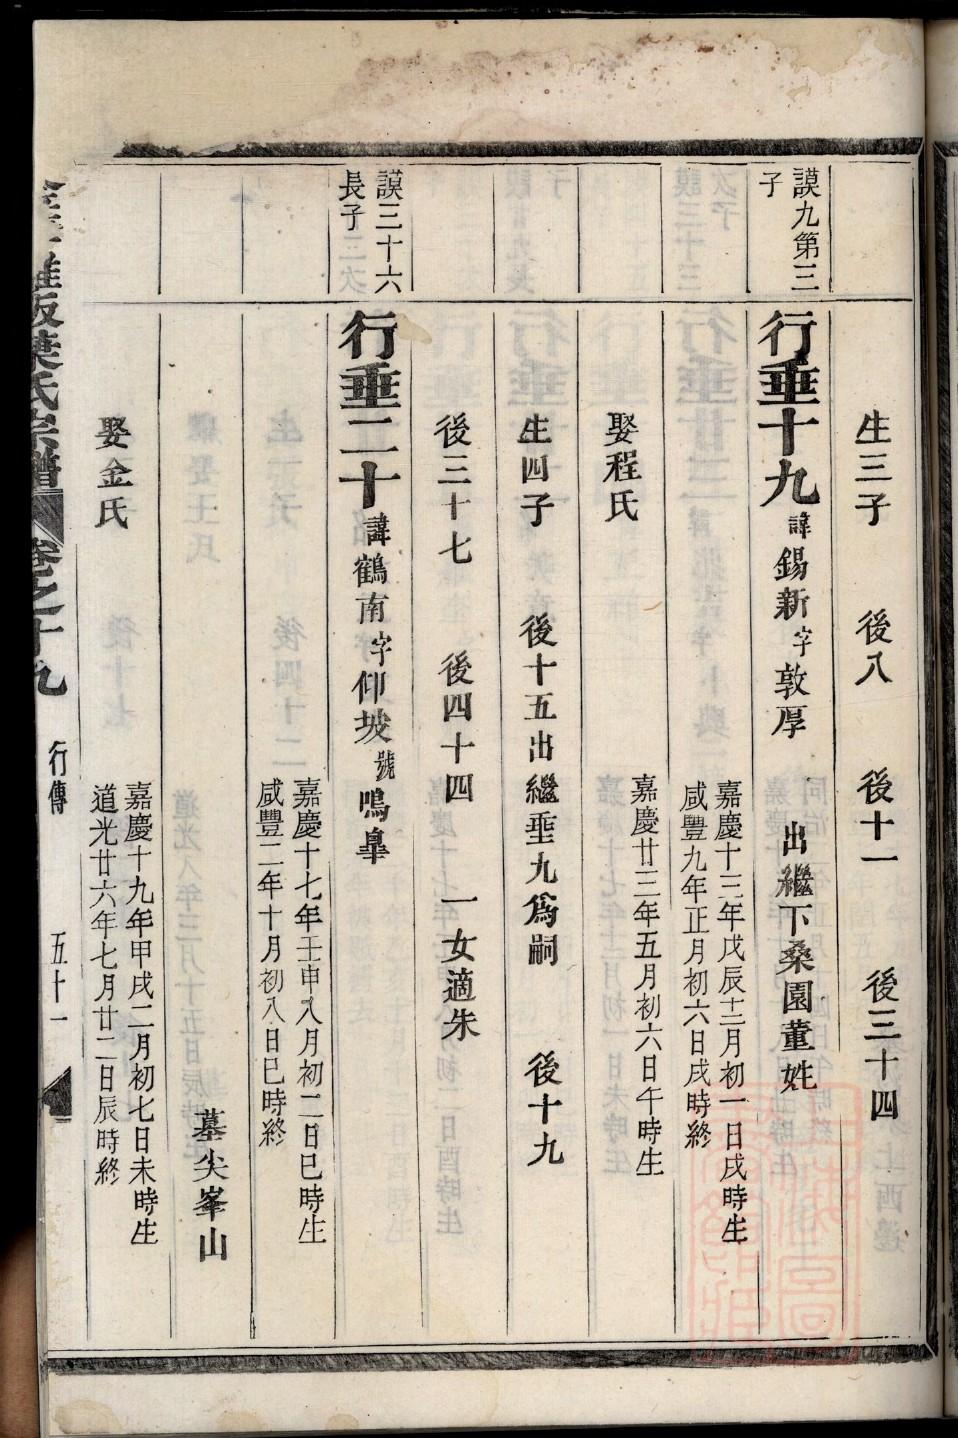 生三子　後八　後十一　後三十四
謨九第三
子
行垂十九 諱錫新字敦厚　出繼下桑園董姓
嘉慶十三年戊辰十二月初一日戌時生
咸豐九年正月初六日戌時終
娶程氏　嘉慶廿三年五月初六日午時生
生四子　後十五出繼垂九爲嗣　後十九
後三十七　後四十四　一女適朱
謨三十六
長子
行垂二十 諱鶴南字仰坡號鳴皐
嘉慶十七年壬申八月初二日巳時生
咸豐二年十月初八日巳時終
墓尖峯山
娶金氏
嘉慶十九年甲戌二月初七日未時生
道光廿六年七月廿二日辰時終
葉氏宗譜 卷之十九 行傳 五十一